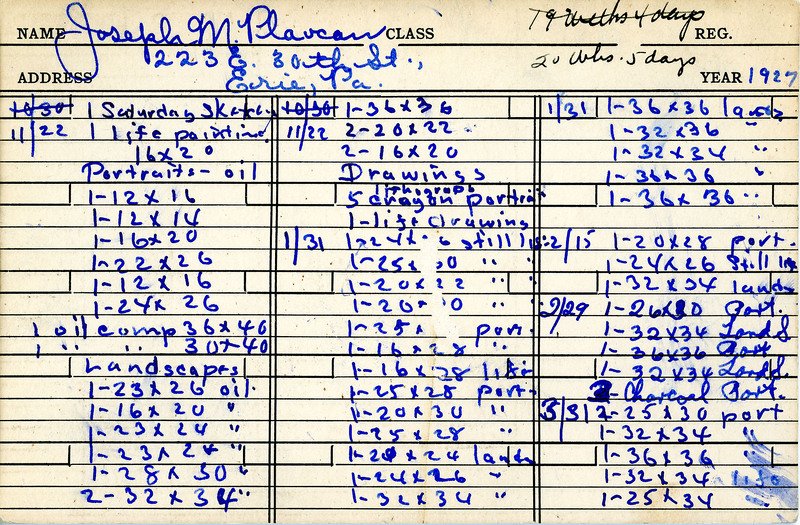 NAME Joseph M. Plavcan CLASS REG.
19 Weeks 4 days
223 E. 30th St.,
20 Whs. 5 days
ADDRESS Erie, Pa. YEAR 1927
10 30 1 Saturday Sketch
11/22 1 life painting
16x20
Portraits - oil
1-12x16
1-12x14
1-16x20
1-22x26
1-12x16
1-24x26
1 oil comp 36x40
1 " " 30x40
Landscapes
1-23x26 oil.
1-16x20 "
1-23x24 "
1-23x24 "
1-28x30 "
2-32x34 "
10 30 1-36x36
11/22 2-20x22
2-16x20
Drawings
lithograph
5 crayon portrait
1-life drawing
1/31 1-24x 6 still life
1-25x30 " "
1-20x22 " "
1-20x 0 " "
1-25x port.
1-16x28 "
1-16x28 life
1-25x28 port.
1-20x30 "
1-25x28 "
1-20x24 lands
1-24x26 "
1-32x34 "
1/31 1-36x36 lands
1-32x36 "
1-32x34 "
1-36x36 "
1-36x36 "
2/15 1-20x28 port.
1-24x26 Still life
1-32x34 lands
2/29 1-26x30 Port.
1-32x34 Lands
1-36x36 Port
1-32x34 Lands.
2-Charcoal Port.
3/31 2-25x30 port
1-32x34 "
1-36x36 "
1-32x34 life
1-25x34 "